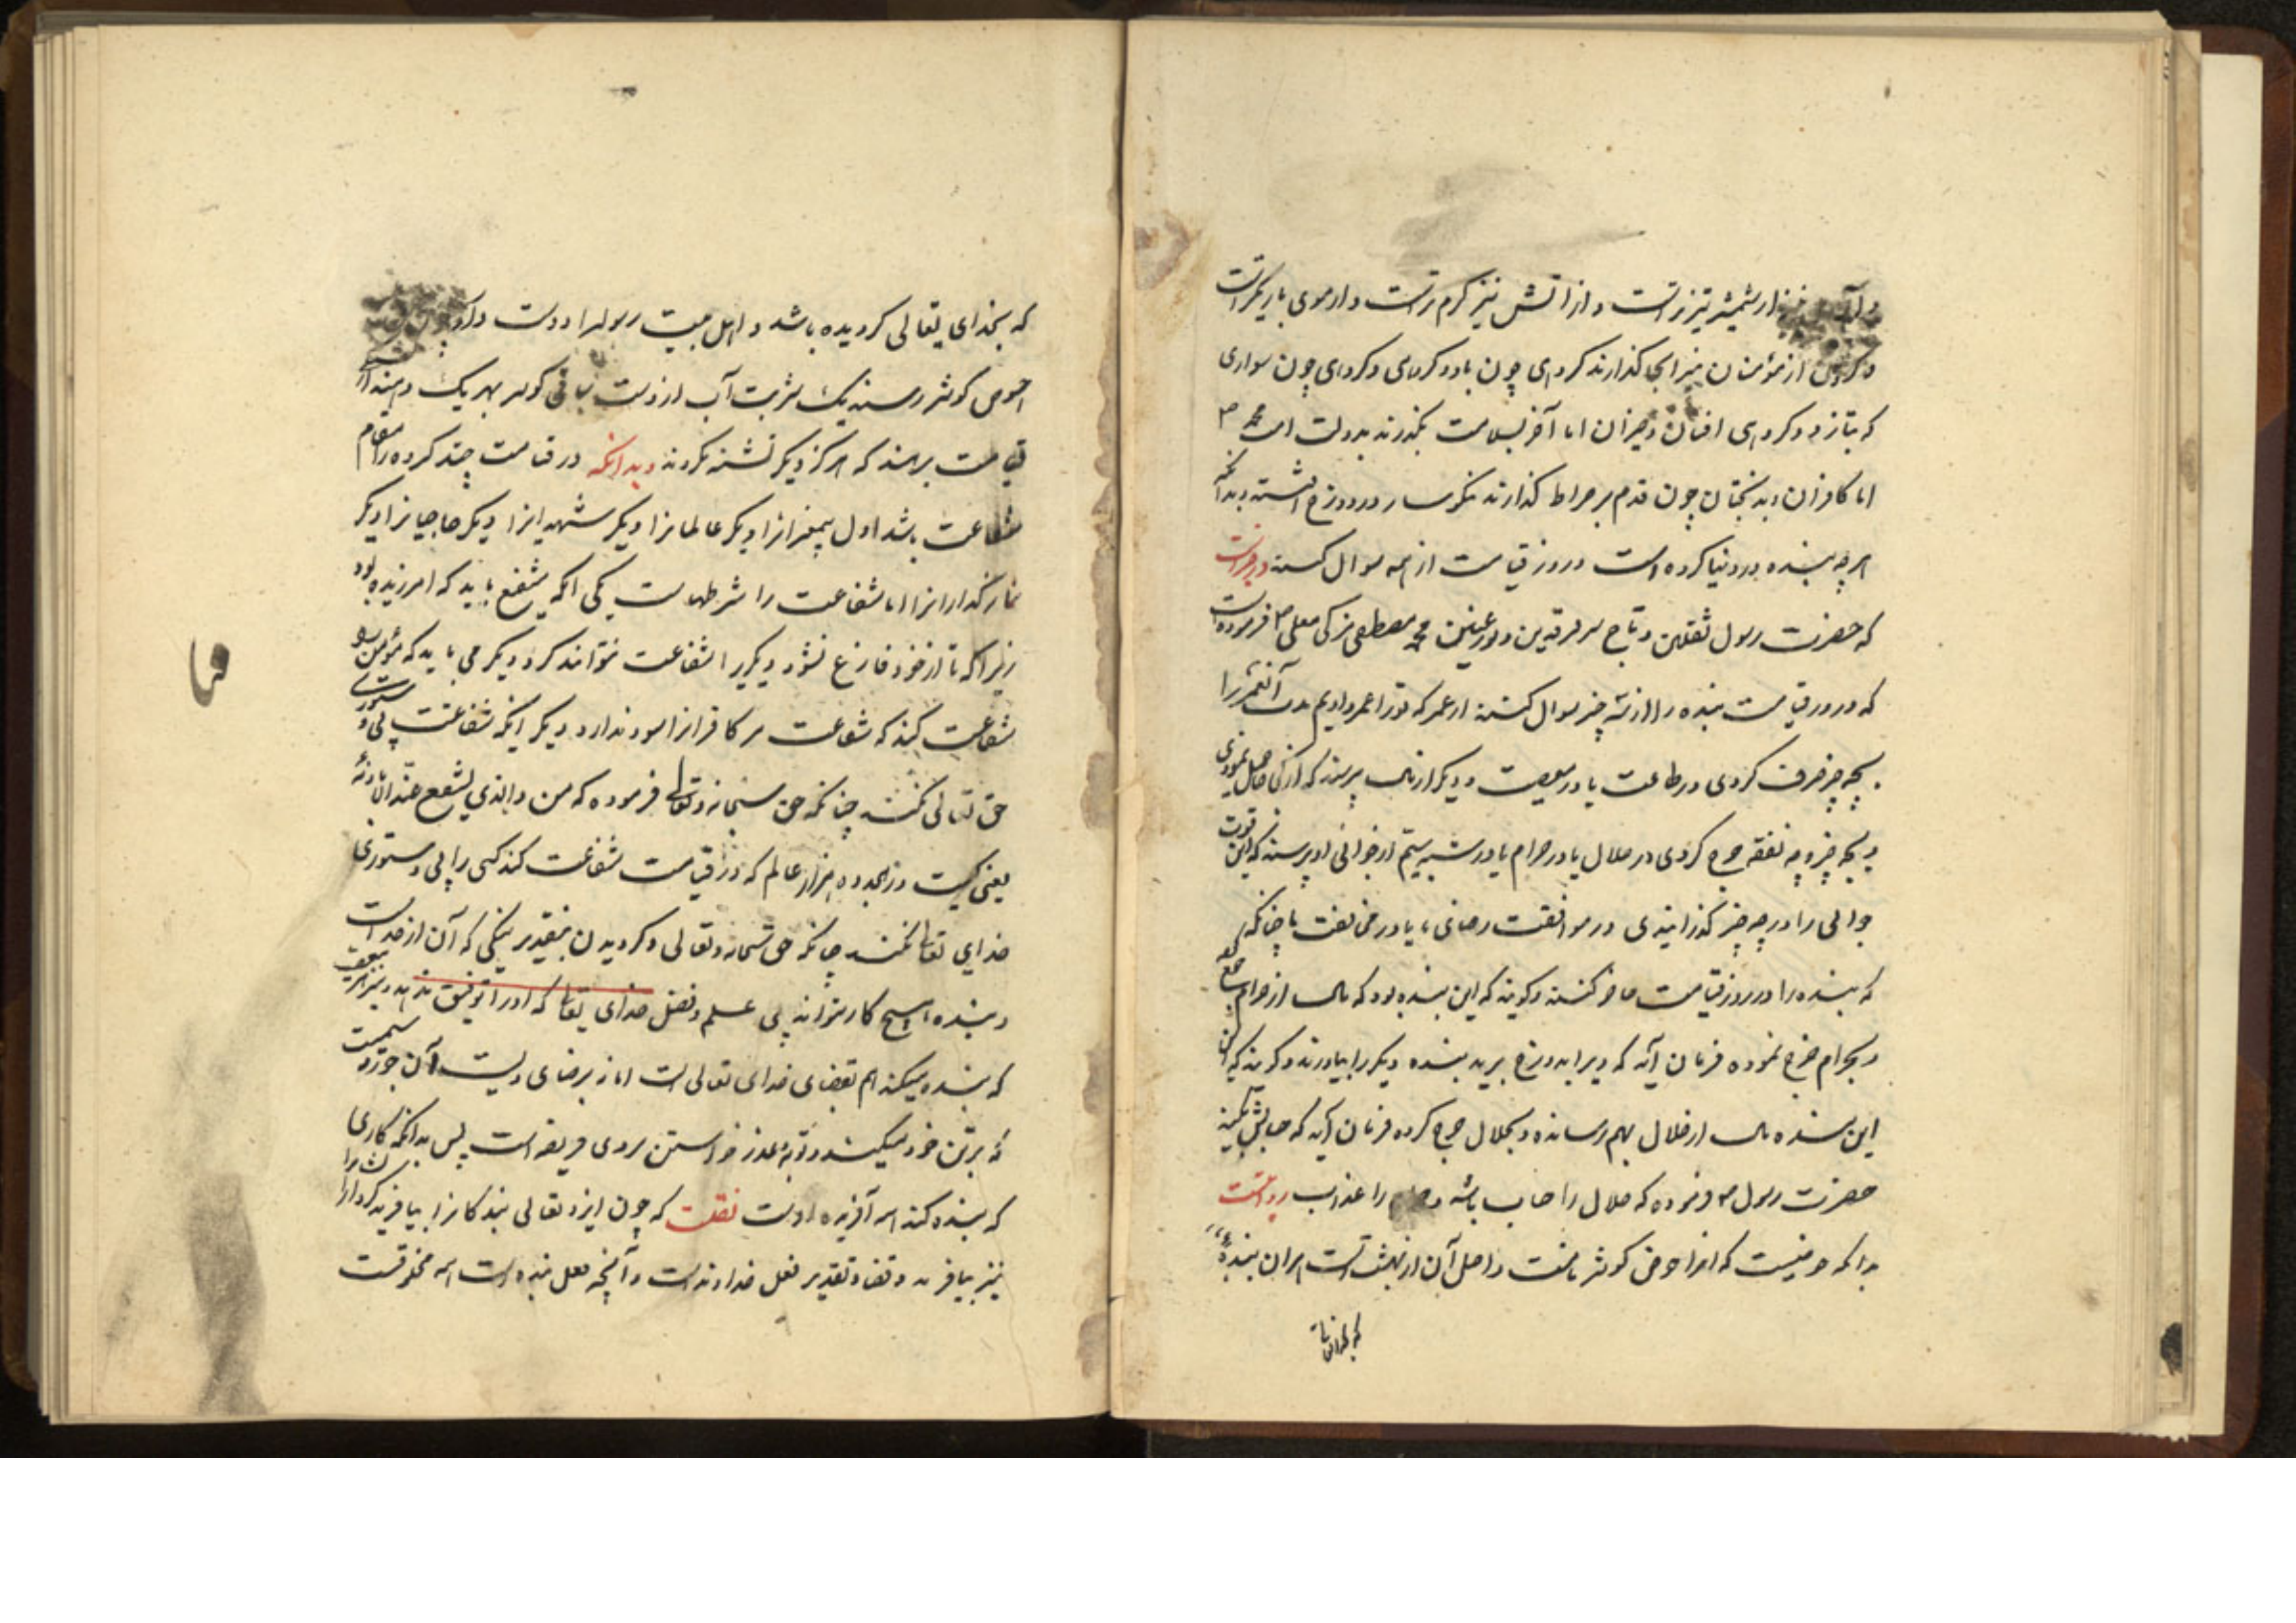 از شمشیر تیز تراست و از اتش نیز کرم تراست و از موی باریکتراست
از مؤمنان نیز انجا کذارند کروهی چون باد و کروهی و کروهی چون سواری
که بتازد و کروهی افتان و خیزان اما آخر بسلامت بکذرند بدولت محمد ص
اما کافران و بدبختان چون قدم بر صراط کذارند نکوسار در دوزخ افتند بدآنکه
هر چه بنده در دنیا کرده است در روز قیامت از همه سوال کنند در خبرست
که حضرت رسول ثقلین و تاج سر فرقدین و نور عینین محمد مصطفی مزکی معلی ص فرموده است
که در روز قیامت بنده را از سه چیز سوال کنند از عمر که تورا عمر دادیم مدت آنعمر را
بچه چیز صرف کردی در طاعت یا در معصیت و دیکر از مال پرسند که از کی حاصل نمودی
و بچه چیز و چه نفقه خرج کردی در حلال یا در حرام یا در شبه سیم از جوانی او پرسند که این قوت
جوانی را در چه چیز کذرانیدی در موافقت رضای ما یا در مخالفت ما چنانکه
که بنده را در روز قیامت حاضر کنند و کویند که این بنده بود که مال از حرام جمع
و بحرام خرج نموده فرمان آید که ویرا بدوزخ برید بنده دیکر را بیاورند و کویند که
این بنده مال از حلال بهم رسانده و بحلال خرج کرده فرمان آید که حسابش بکنید
حضرت رسول ص فرموده که حلال را حساب باشد و حرام را عذاب
بدانکه حوضیست که انرا حوض کوثر نامند و اصل آن از بهشت است هر آن بنده
که بخدای تعالی کرویده باشد و اهل بیت رسولرا دوست دارد
حوض کوثر رسند یک شربت آب از دست ساقی کوثر بهر یک دهند از
قیامت برهند که هرکز دیکر تشنه نکردند و بدانکه در قیامت چند کروه را مقام
شفاعت باشد اول پیغمبرانرا دیکر عالمانرا دیکر شهیدانرا دیکر حاجیانرا دیکر
نماز کذارانرا اما شفاعت را شرطهاست یکی انکه شفیع باید که امرزیده بود
زیرا که تا از خود فارغ نشود دیکریرا شفاعت نتواند کرد دیکر می باید که مؤمن را
شفاعت کند که شفاعت مر کافرانرا سود ندارد دیکر انکه شفاعت بی دستوری
حق تعالی نکنند چنانکه حق سبحانه وتعالی فرموده که من ذا الذی یشفع عنده الا باذنه
یعنی کیست در هجده هزار عالم که در قیامت شفاعت کند کسی را بی دستوری
خدای تعالی نکنند چنانکه حق سبحانه وتعالی و کرویدن بتقدیر نیکی که آن از خداست
و بنده هیچ کار نتواند بی علم و فضل خدای تعالی که او را توفیق ندهد و نیز
که بنده میکند هم بقضای خدای تعالی است اما نه برضای ویست آن جور و ستمیست
که بر تن خود میکند و توبه و عذر خواستن بروی فریضه است پس بدانکه کاری
که بنده کند همه آفریده اوست نقلت که چون ایزد تعالی بندکانرا بیافرید کردار ایشانرا
نیز بیافرید و قضا و تقدیر فعل خداوند است و آنچه فعل بنده است همه مخلوقست